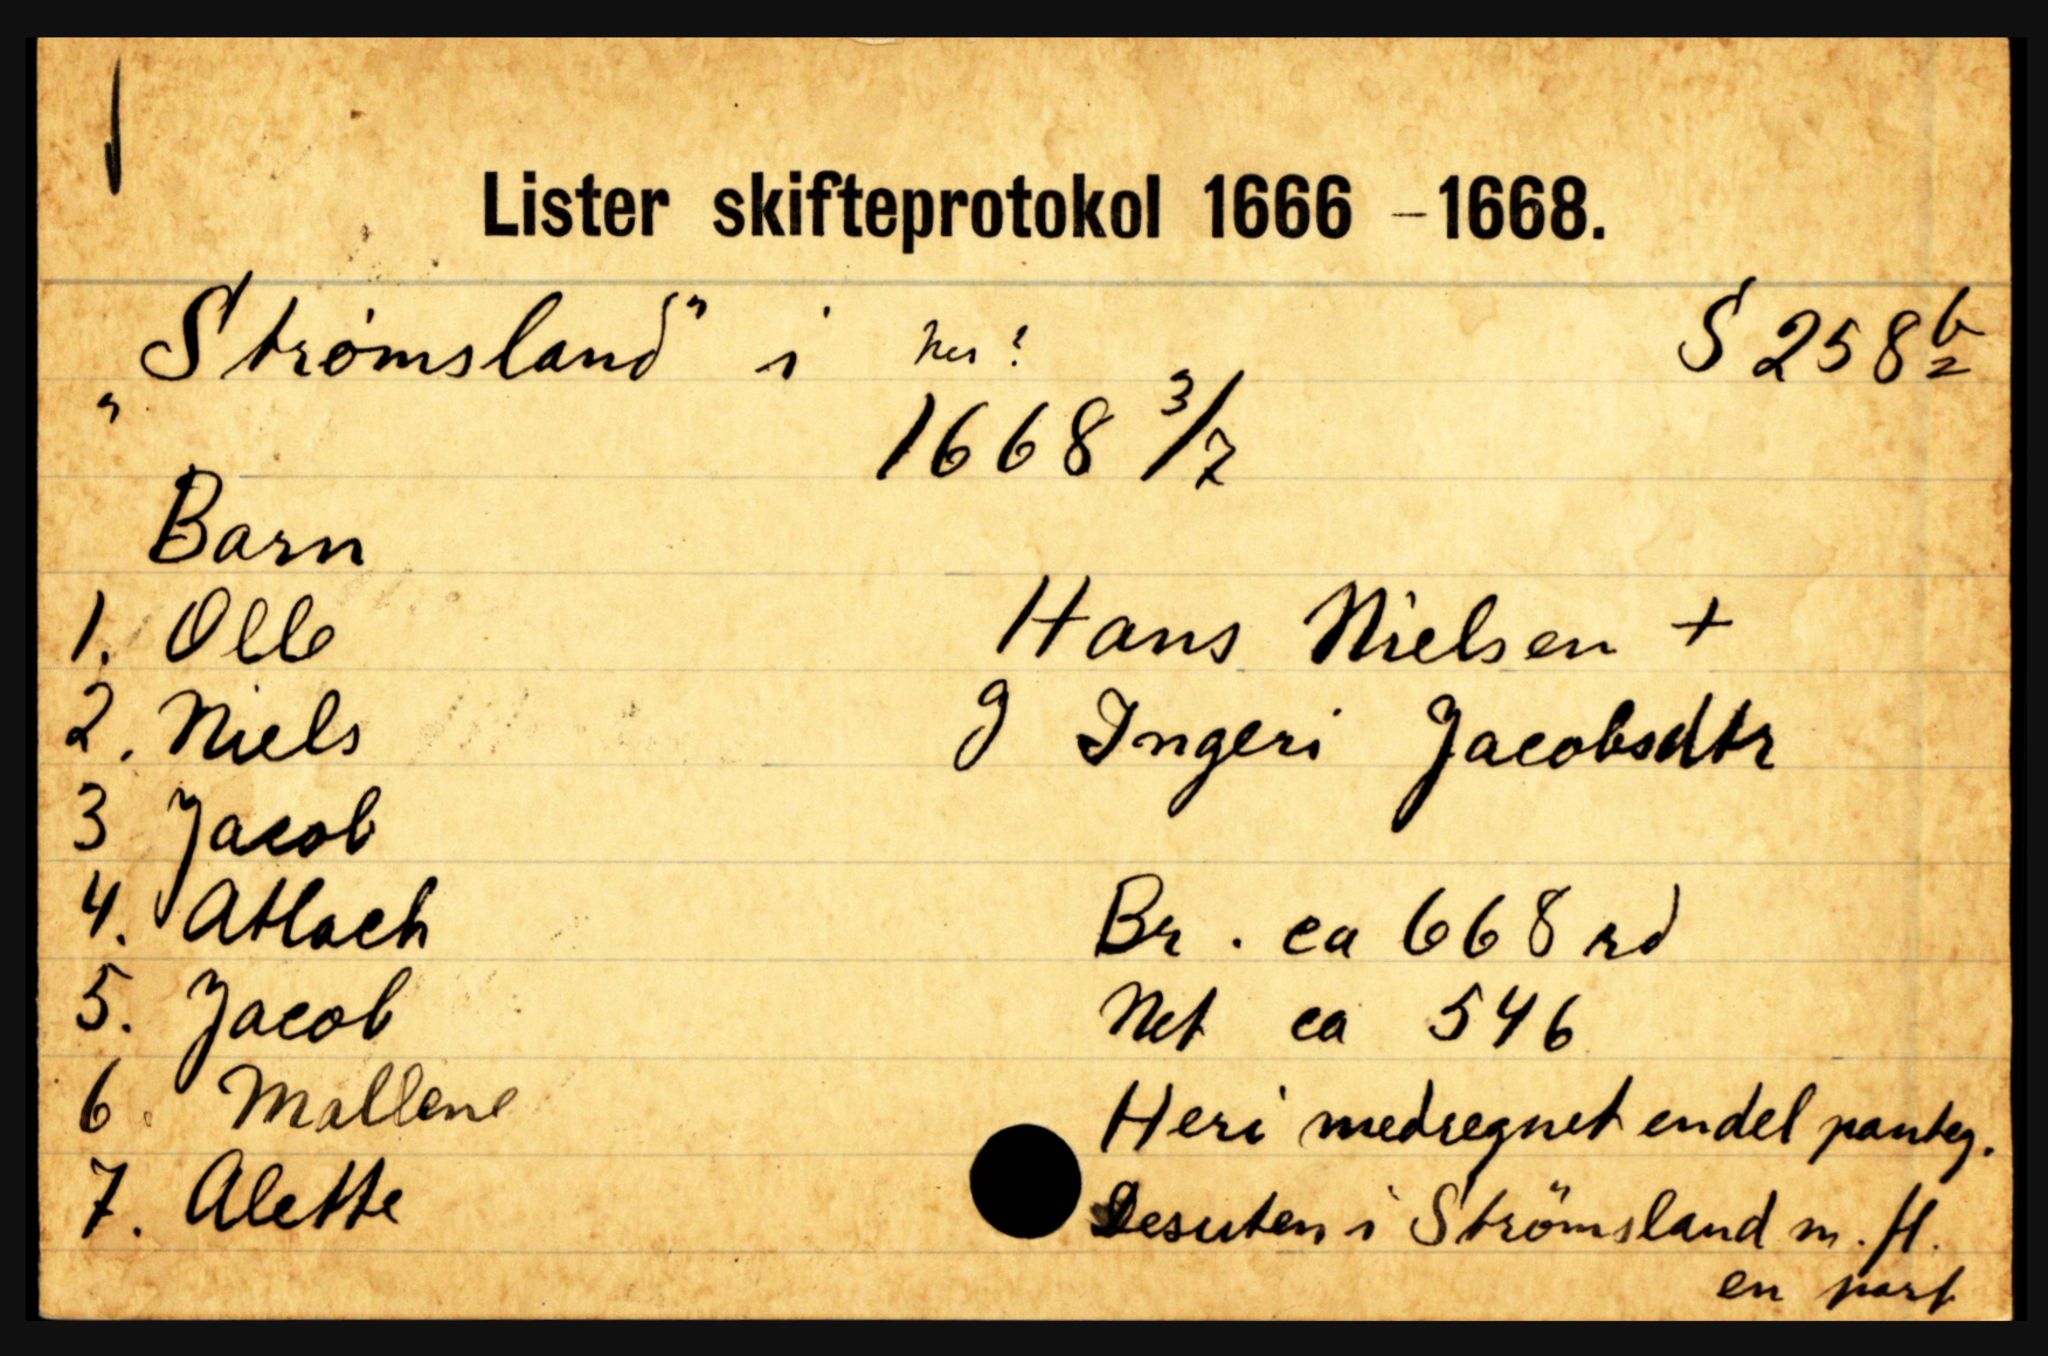 Lister skifteprotokol 1666 - 1668.
"Strömsland" i hes? S 258 b 2
1668 3/7
Barn
1. Olle Hans Nielsen +
2. Niels g Ingeri Jacobsdtr
3 Jacob
4. Atlach Br. ca 668 rd
5. Jacob Net ca 546
6. Mallene Heri medregnet endel panteg.
7. Alette Desuten i Strömsland m. fl.
en part